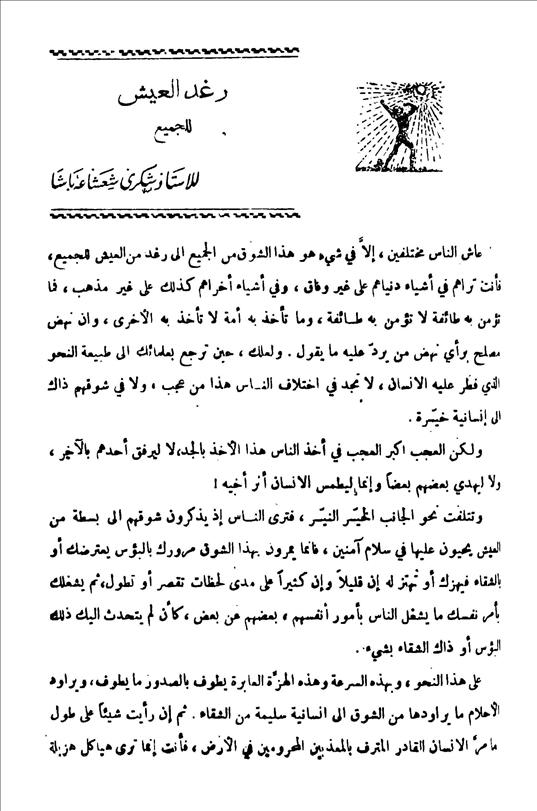 رغد العيش
للجميع
للاستاذ شكري شعشاعة باشا
عاش الناس مختلفين ، إلاَّ في شيء هو هذا الشوق من الجميع الى رغد من العيش للجميع،
فأنت تراهم في أشياء دنياهم على غير وفاق ، وفي أشياء أخراهم كذلك على غير مذهب ، فما
تؤمن به طائفة لا تؤمن به طائفة ، وما تأخذ به أمة لا تأخذ به الأخرى ، وان نهض
مصلح برأي نهض من يردّ عليه ما يقول . ولعلك ، حين ترجع بعلمائك الى طبيعة النحو
الذي فطر عليه الانسان ، لا تجد في اختلاف الناس هذا من عجب ، ولا في شوقهم ذاك
الى إنسانية خيّرة .
ولكن العجب اكبر العجب في أخذ الناس هذا الأخذ بالجد، لا ليرفق أحدهم بالآخر ،
ولا ليهدي بعضهم بعضاً وإنما ليطمس الانسان أثر أخيه !
وتتلفت نحو الجانب الخيّر النيّر ، فترى الناس إذ يذكرون شوقهم الى بسطة من
العيش يحيون عليها في سلام آمنين ، فانما يمرون بهذا الشوق مرورك بالبؤس يعترضك أو
بالشقاء فيهزك أو تهتز له إن قليلاً وإن كثيراً على مدى لحظات تقصر أو تطول، ثم يشغلك
بأمر نفسك ما يشغل الناس بأمور أنفسهم ، بعضهم عن بعض ، كأن لم يتحدث اليك ذلك
البؤس أو ذاك الشقاء بشيء .
على هذا النحو ، وبهذه السرعة وهذه الهزّة العابرة يطوف بالصدور ما يطوف، ويراود
الأحلام ما يراودها من الشوق الى انسانية سليمة من الشقاء . ثم إن رأيت شيئاً على طول
ما مرَّ الانسان القادر المترف بالمعذبين المحرومين في الأرض ، فأنت إنما ترى هياكل هزيلة